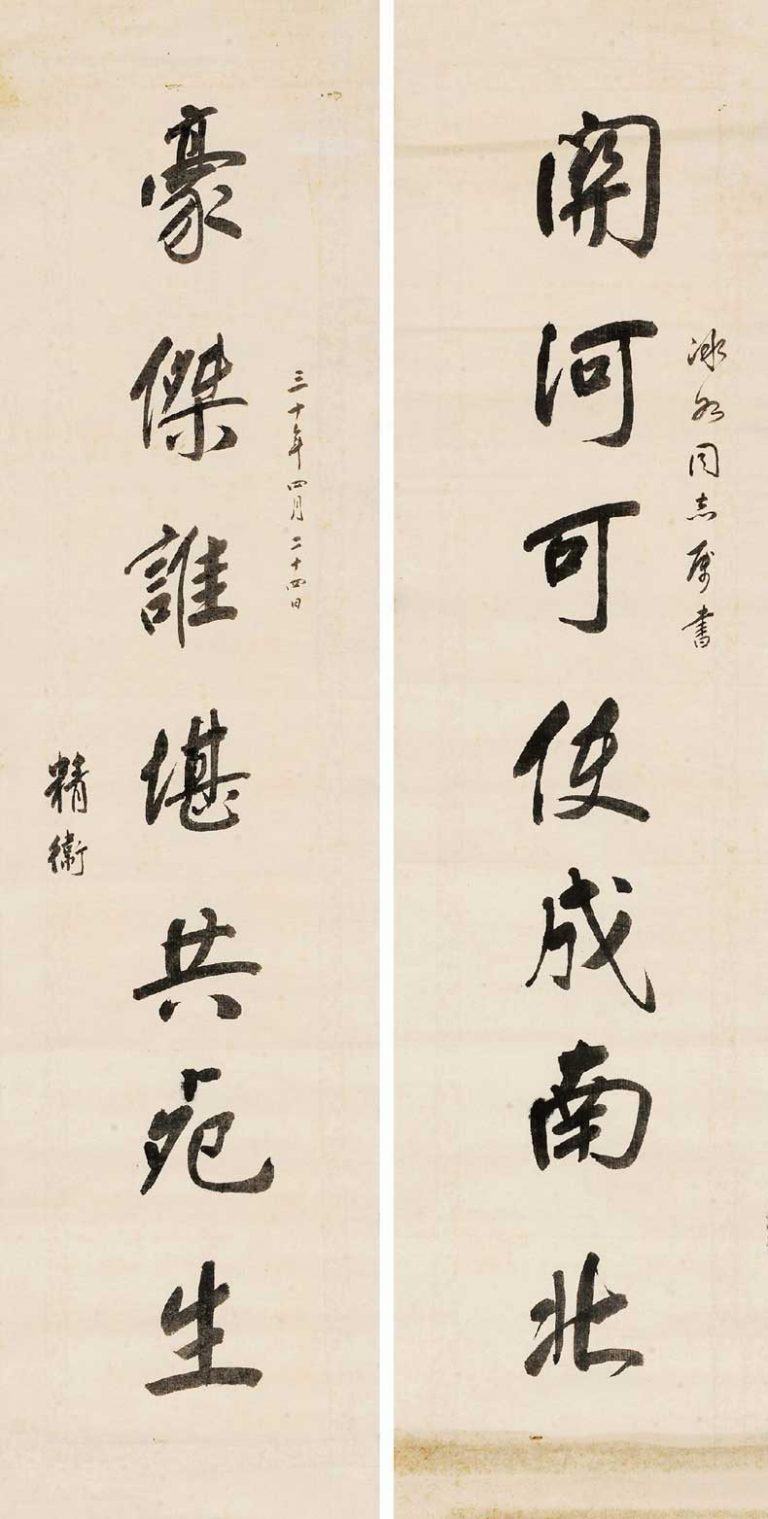 冰如同志屬書
關河可使成南北
三十年四月二十四日
豪傑誰堪共死生
精衛